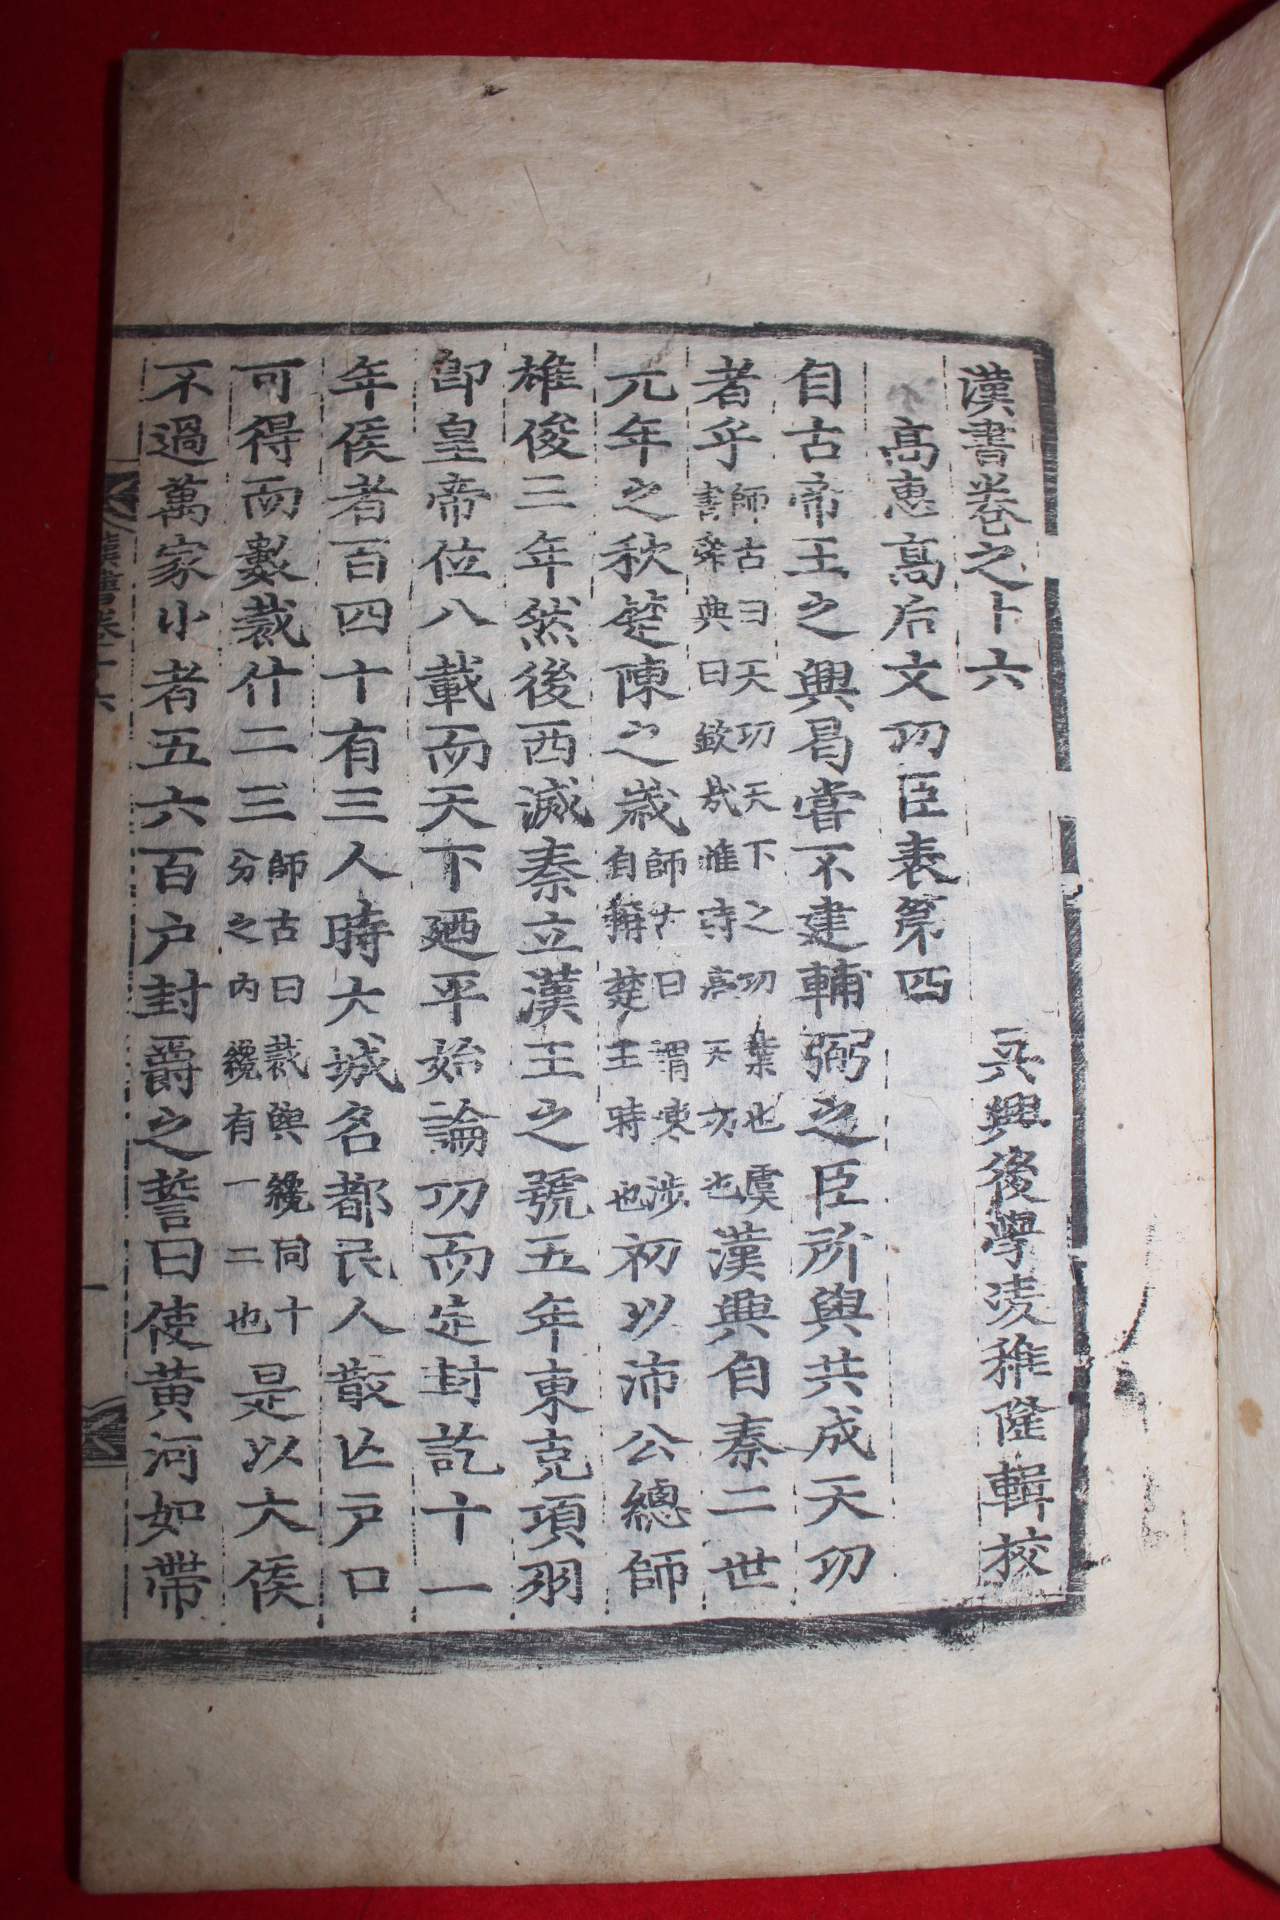 漢書卷之十六　吳興後學凌稚隆輯校
高惠高后文功臣表第四
自古帝王之興曷嘗不建輔弼之臣所與共成天功
者乎師古曰天功天下之功業也虞書舜典曰欽哉惟時亮天功也漢興自秦二世
元年之秋楚陳之歲師古曰謂陳涉自稱楚王時也初以沛公總師
雄俊三年然後西滅秦立漢王之號五年東克項羽
卽皇帝位八載而天下迺平始論功而定封訖十一
年侯者百四十有三人時大城名都民人散亡戶口
可得而數裁什二三師古曰裁與纔同十分之内纔有一二也是以大侯
不過萬家小者五六百户封爵之誓曰使黃河如帶
漢書卷十六　一